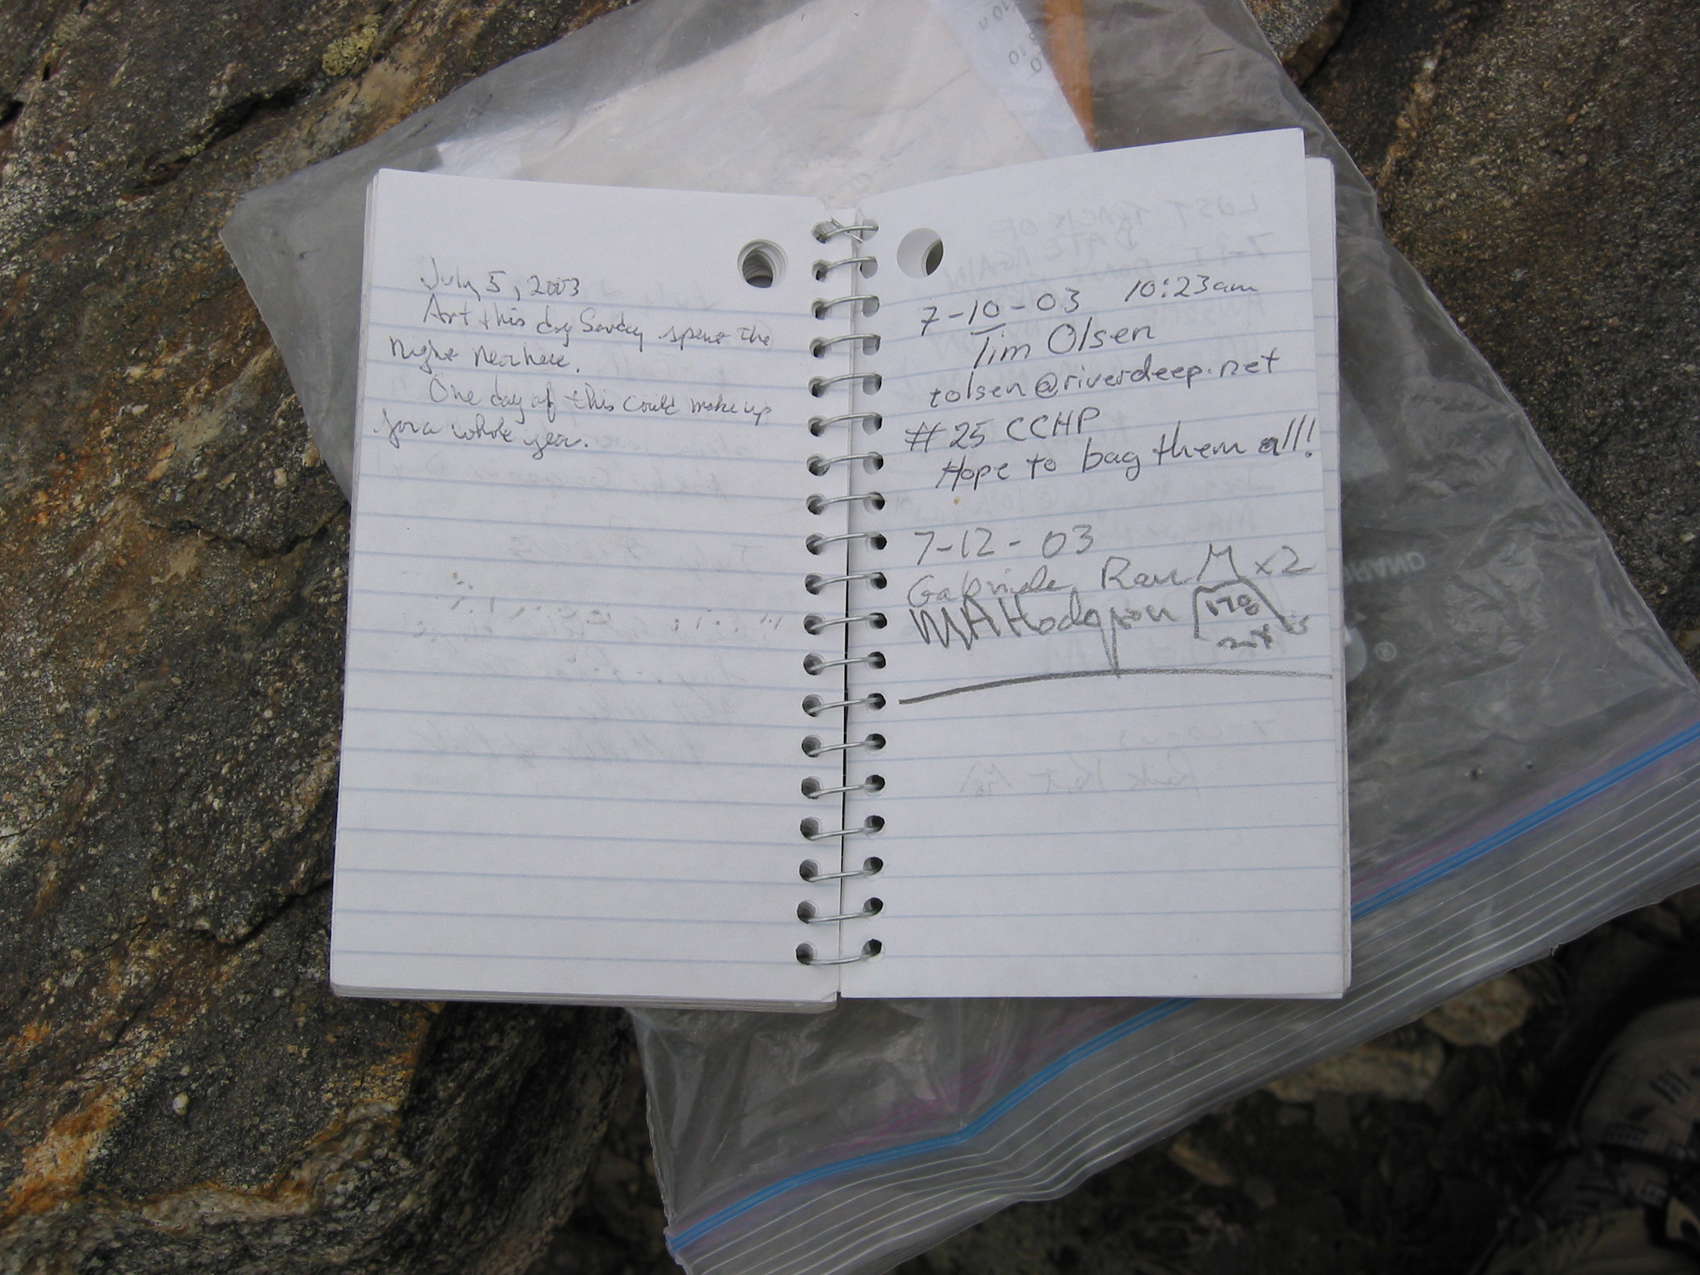 July 5, 2003
Art this day Sunday spent the
night near here.
One day of this could make up
for a whole year.
7-10-03 10:23am
Tim Olsen
tolsen@riverdeep.net
#25 CCHP
Hope to bag them all!
7-12-03
Gabriele Rau M x2
MA Hodgson
LOST TRACK OF
DATE AGAIN